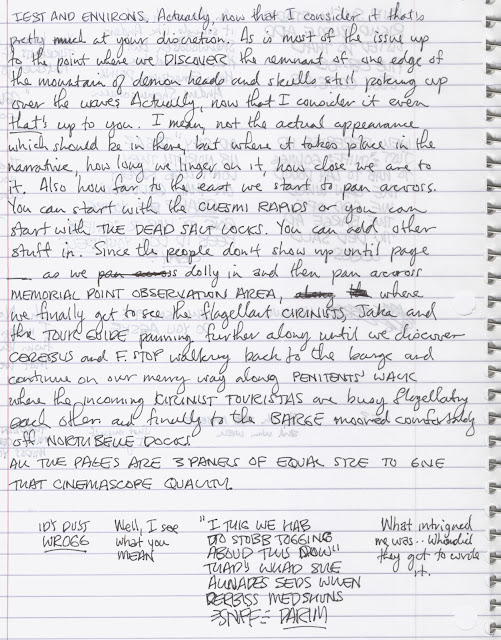 IEST AND ENVIRONS. Actually, now that I consider it that's
pretty much at your discretion. As is most of the issue up
to the point where we DISCOVER the remnant of one edge of
the mountain of demon heads and skulls still poking up
over the waves Actually, now that I consider it even
that's up to you. I mean, not the actual appearance
which should be in there, but where it takes place in the
narrative, how long we linger on it, how close we are to
it. Also how far to the east we start to pan across.
You can start with the CUESMI RAPIDS or you can
start with THE DEAD SALT LOCKS. You can add other
stuff in. Since the people don't show up until page
__ as we pan across dolly in and then pan across
MEMORIAL POINT OBSERVATION AREA, along the where
we finally get to see the flagellant CIRINISTS, Jaka and
the TOUR GUIDE panning further along until we discover
CEREBUS and F. STOP walking back to the barge and
continue on our merry way along PENITENTS' WALK
where the incoming KIRUNIST TOURISTAS are busy flagellating
each other and finally to the BARGE moored comfortably
off NORTH BELLE DOCKS
ALL THE PAGES ARE 3 PANELS OF EQUAL SIZE TO GIVE
THAT CINEMASCOPE QUALITY.
ID'S DUST
WROGG
Well, I see
what you
MEAN
"I THIG WE HAB
DO STOBB TOGGING
ABOUD THIS NOW"
THAD'S WHAD SHE
ALWADES SEDS WHEN
DERBISS MEDSHUNS
=SNIFF= DARIM
What intrigued
me was.. Who did
they get to write
it.